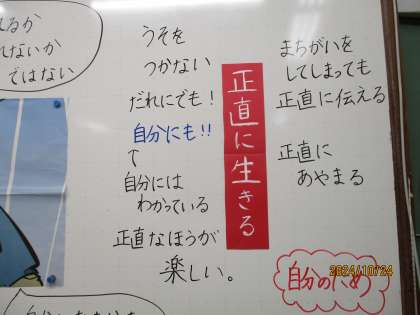 れるか
れないか
ではない
うそを
つかない
だれにでも！
自分にも!!
↑
自分には
わかっている
正直なほうが
楽しい。
正直に生きる
まちがいを
してしまっても
正直に伝える
正直に
あやまる
自分のため
2024/10/24